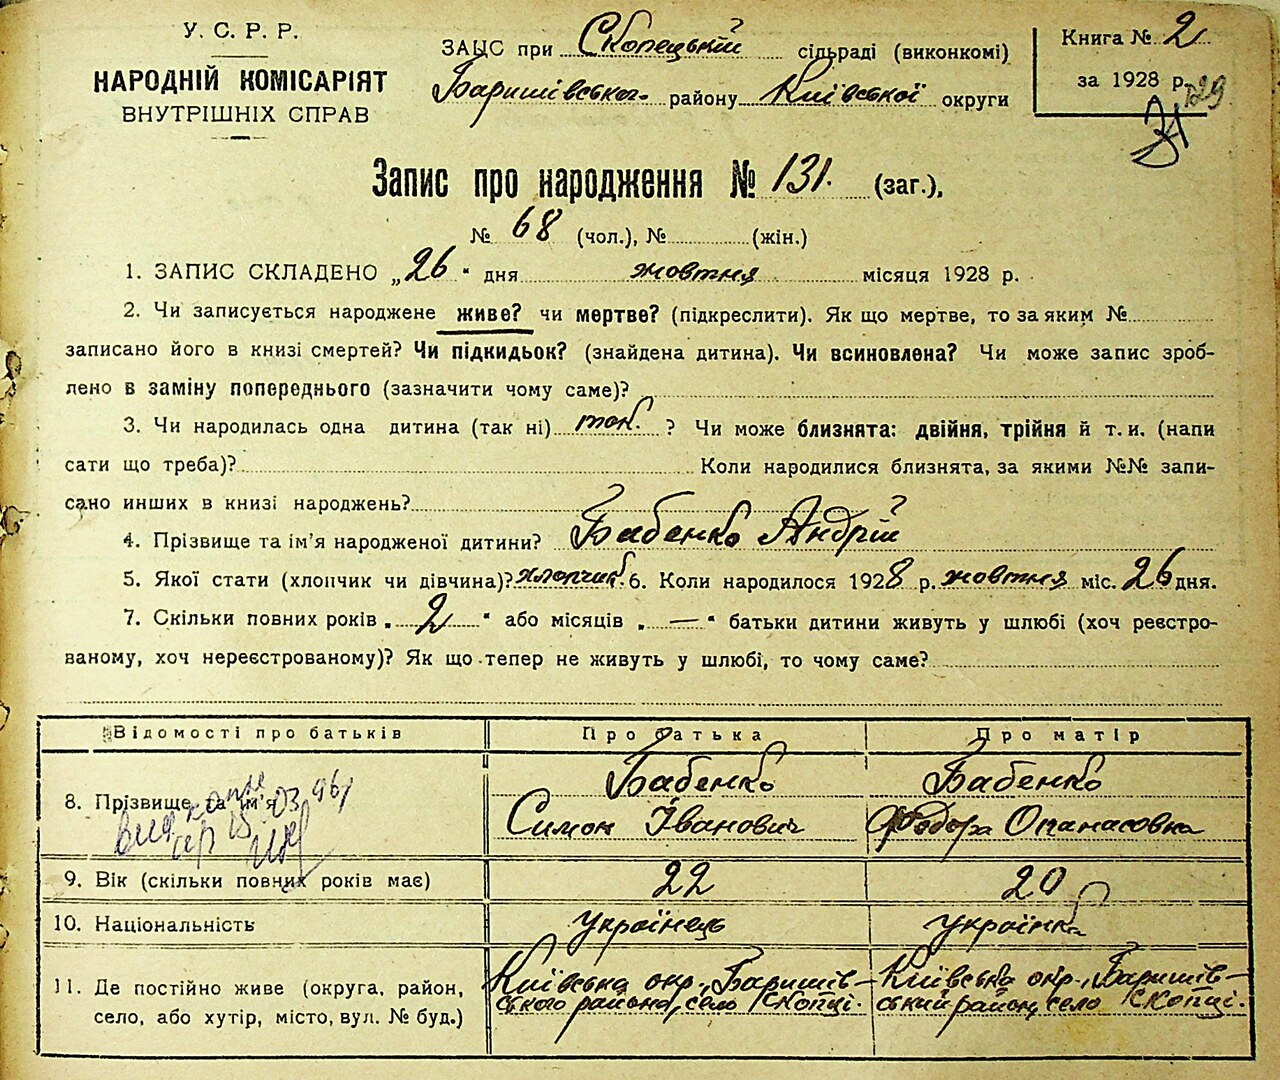 У. С. Р. Р.
НАРОДНІЙ КОМІСАРІЯТ
ВНУТРІШНІХ СПРАВ
ЗАЦС при Скопецькій сільраді (виконкомі)
Баришівського району Київської округи
Книга № 2
за 1928 р.
129
Запис про народження № 131. (заг.),
№ 68 (чол.), № (жін.)
1. ЗАПИС СКЛАДЕНО „26“ дня жовтня місяця 1928 р.
2. Чи записується народжене живе? чи мертве? (підкреслити). Як що мертве, то за яким №
записано його в книзі смертей? Чи підкидьок? (знайдена дитина). Чи всиновлена? Чи може запис зроб-
лено в заміну попереднього (зазначити чому саме)?
3. Чи народилась одна дитина (так ні) так. ? Чи може близнята: двійня, трійня й т. и. (напи
сати що треба)? Коли народилися близнята, за якими №№ запи-
сано инших в книзі народжень?
4. Прізвище та ім'я народженої дитини? Бабенко Андрій
5. Якої стати (хлопчик чи дівчина)? хлопчик. 6. Коли народилося 1928 р. жовтня міс. 26 дня.
7. Скільки повних років „ 2 “ або місяців „ — “ батьки дитини живуть у шлюбі (хоч реєстро-
ваному, хоч нереєстрованому)? Як що тепер не живуть у шлюбі, то чому саме?
Відомості про батьків Про батька Про матір
8. Прізвище та ім'я Бабенко Симон Іванович Бабенко Федора Опанасовна
9. Вік (скільки повних років має) 22 20
10. Національність українець українка
11. Де постійно живе (округа, район, село, або хутір, місто, вул. № буд.) Київська окр., Баришів-
ського района, село Скопці. Київська окр., Баришів-
ський район, село Скопці.